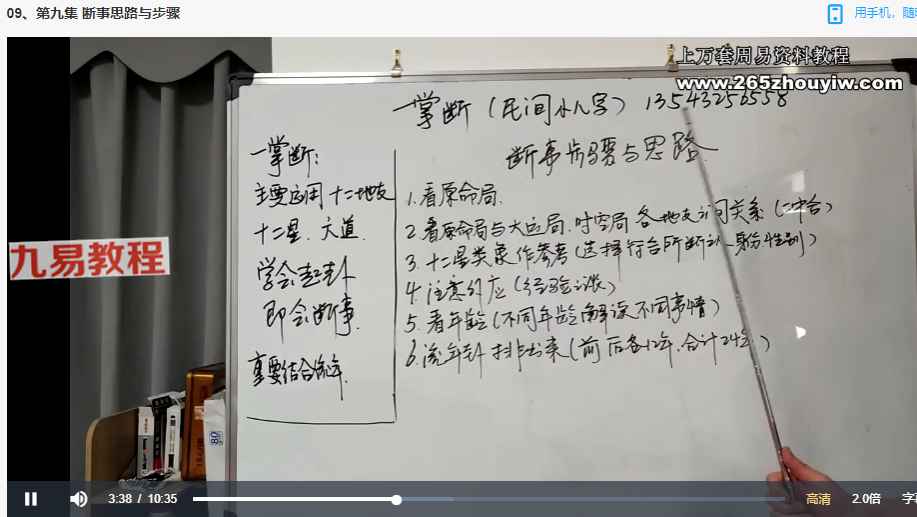 09、第九集 断事思路与步骤
用手机，随
上万套周易资料教程
www.265zhouyiw.com
一掌断（民间小八字）13543256558
断事步骤与思路
九易教程
一掌断：
主要运用十二地支
十二星、六道
学会起卦
即会断事
重要结合流年
1.看原命局
2.看原命局与大运局、时空局各地支之间关系（二中合）
3.十二星类象作参考（选择符合所断之人身份性别）
4.注意外应（经验之谈）
5.看年龄（不同年龄解读不同事情）
6.流年卦排出来（前后各12年，合计24年）
3:38 / 10:35
高清
2.0倍
字